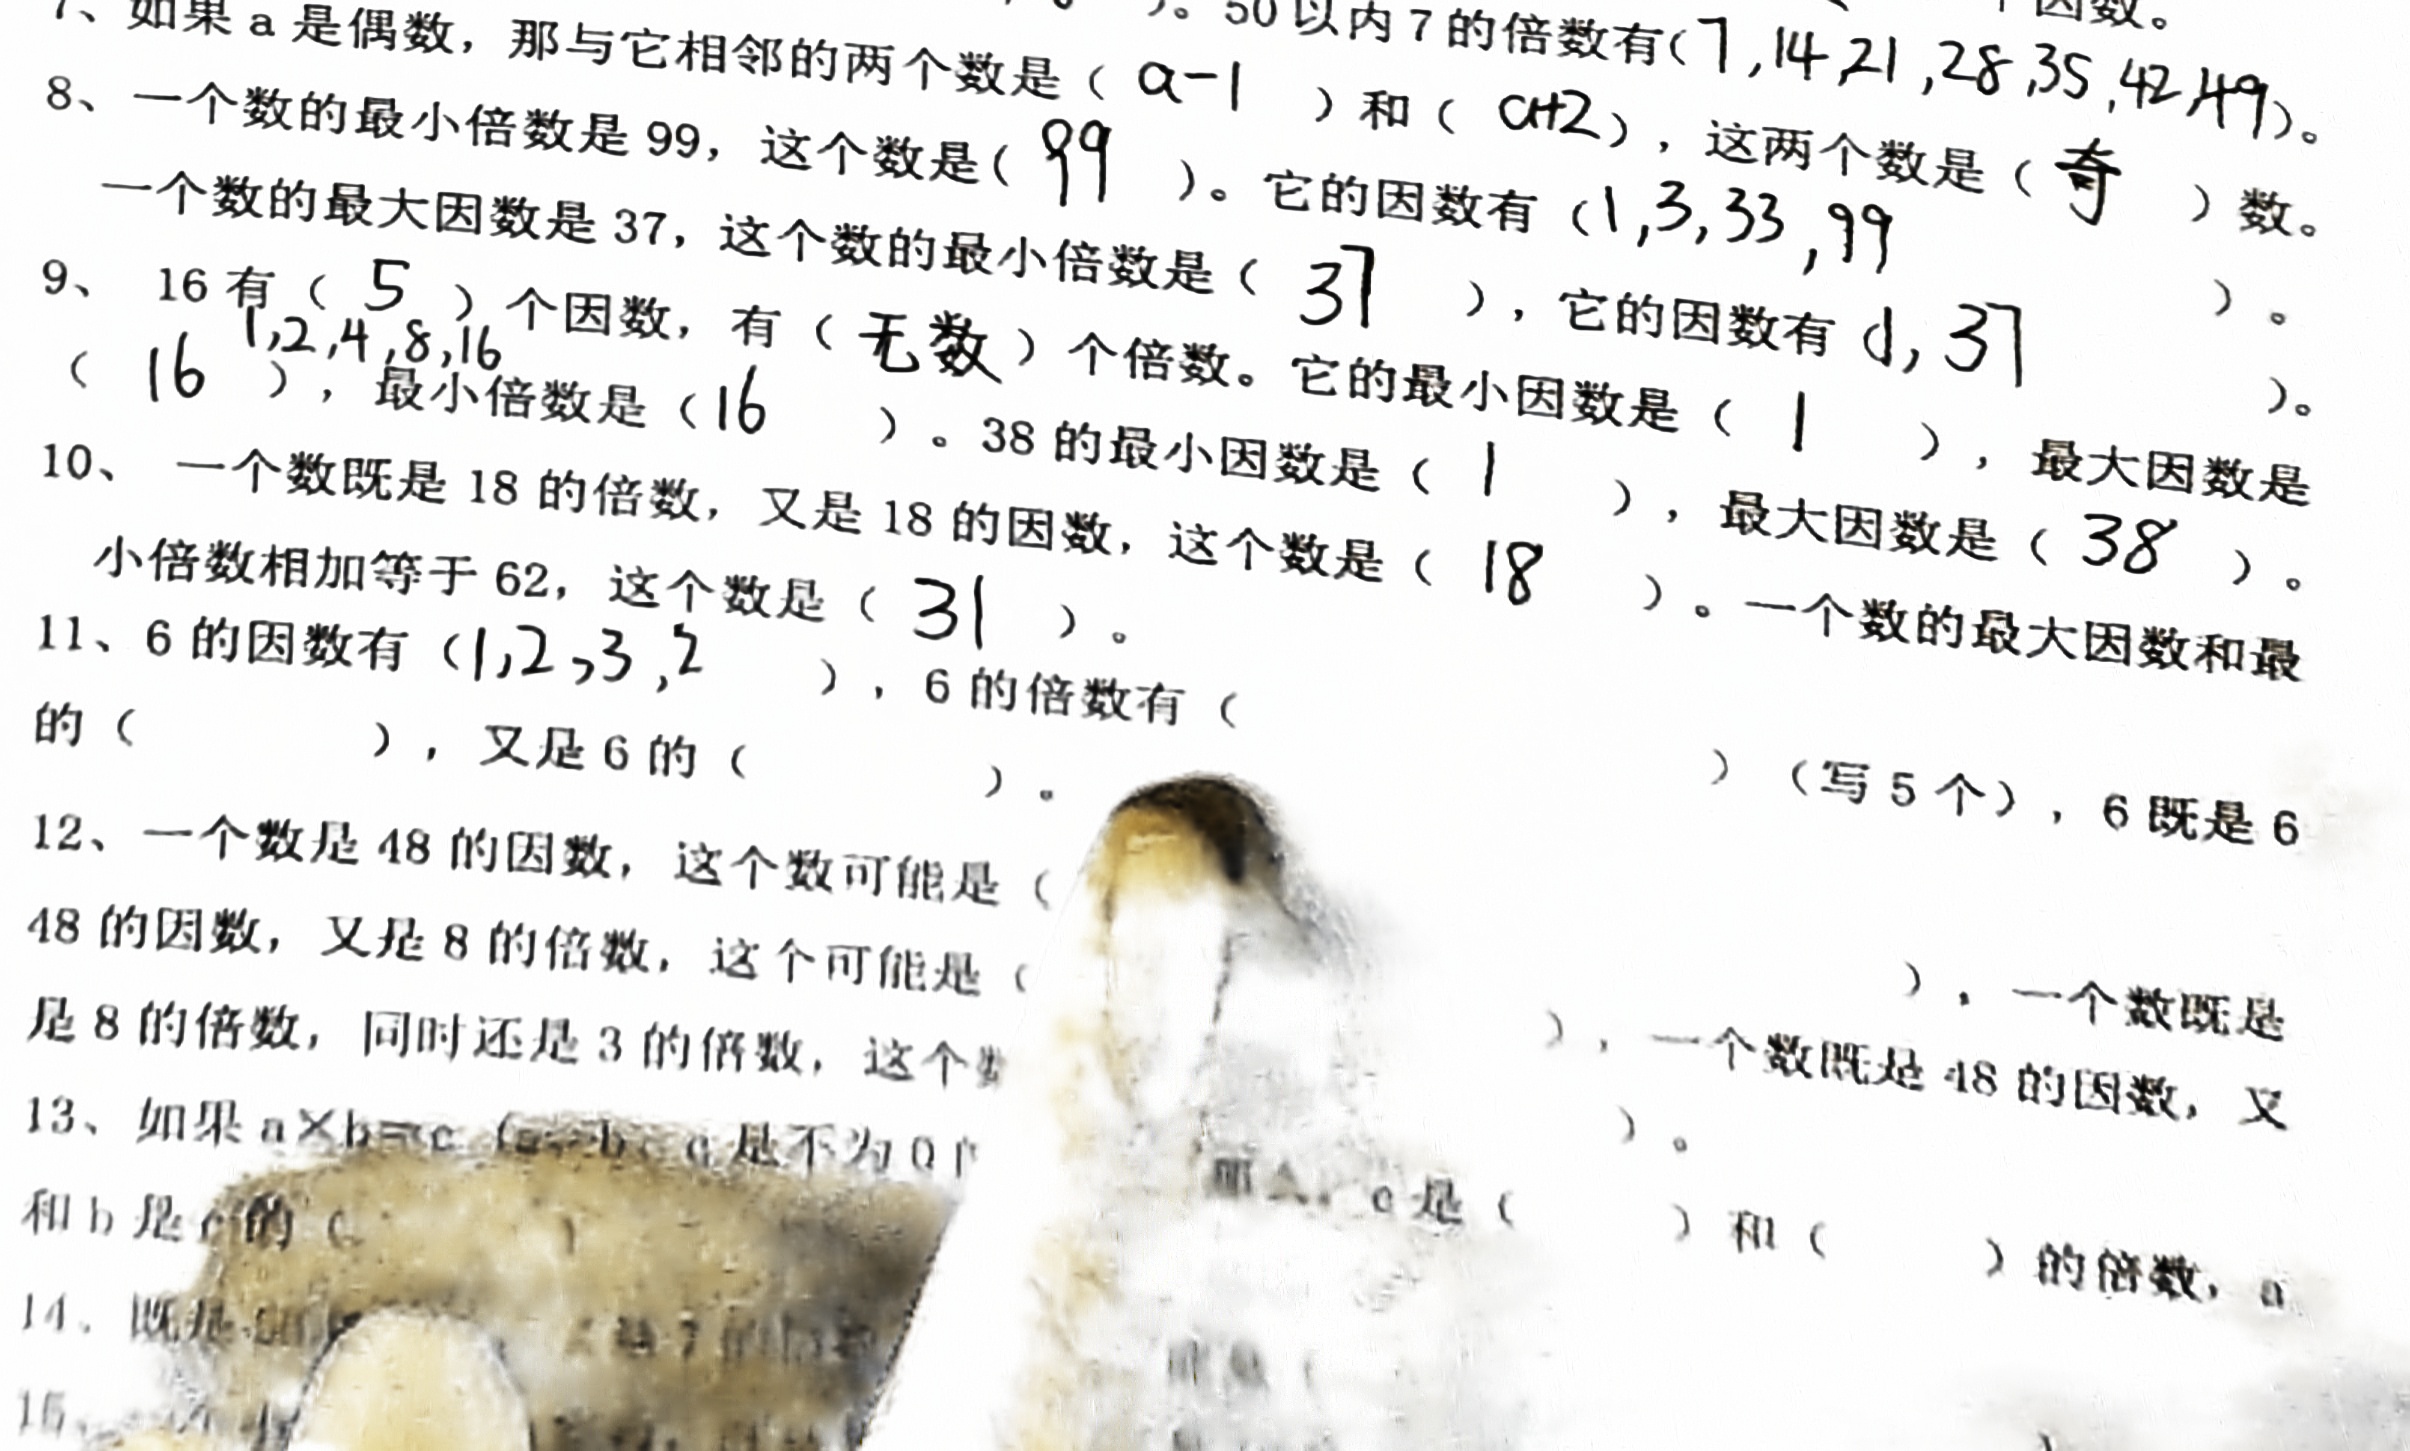 )。50以内7的倍数有(7,14,21,28,35,42,49)。
7、如果a是偶数,那与它相邻的两个数是( a-1 )和( a+2 ),这两个数是( 奇 )数。
8、一个数的最小倍数是99,这个数是( 99 )。它的因数有(1,3,33,99 )。
一个数的最大因数是37,这个数的最小倍数是( 37 ),它的因数有(1,37 )。
9、 16有( 5 )个因数,有( 无数 )个倍数。它的最小因数是( 1 ),最大因数是
1,2,4,8,16
( 16 ),最小倍数是(16 )。38的最小因数是( 1 ),最大因数是( 38 )。
10、 一个数既是18的倍数,又是18的因数,这个数是( 18 )。一个数的最大因数和最
小倍数相加等于62,这个数是( 31 )。
11、6的因数有(1,2,3,2 ),6的倍数有( )(写5个),6既是6
的( ),又是6的( )。
12、一个数是48的因数,这个数可能是( ),一个数既是
48的因数,又是8的倍数,这个可能是( ),一个数既是48的因数,又
是8的倍数,同时还是3的倍数,这个 )。
13、如果a×b=c 是不为0 c是( )和( )的倍数,a
和b是c的(
14、既是 7的